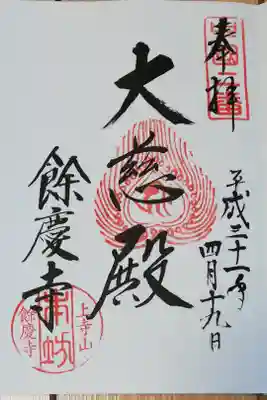 奉拝
平成三十一年
四月十九日
大慈殿
餘慶寺
上寺山
餘慶寺